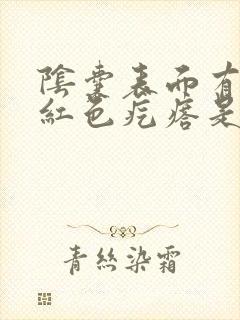 陰囊表面有
紅色疙瘩是
青絲染霜